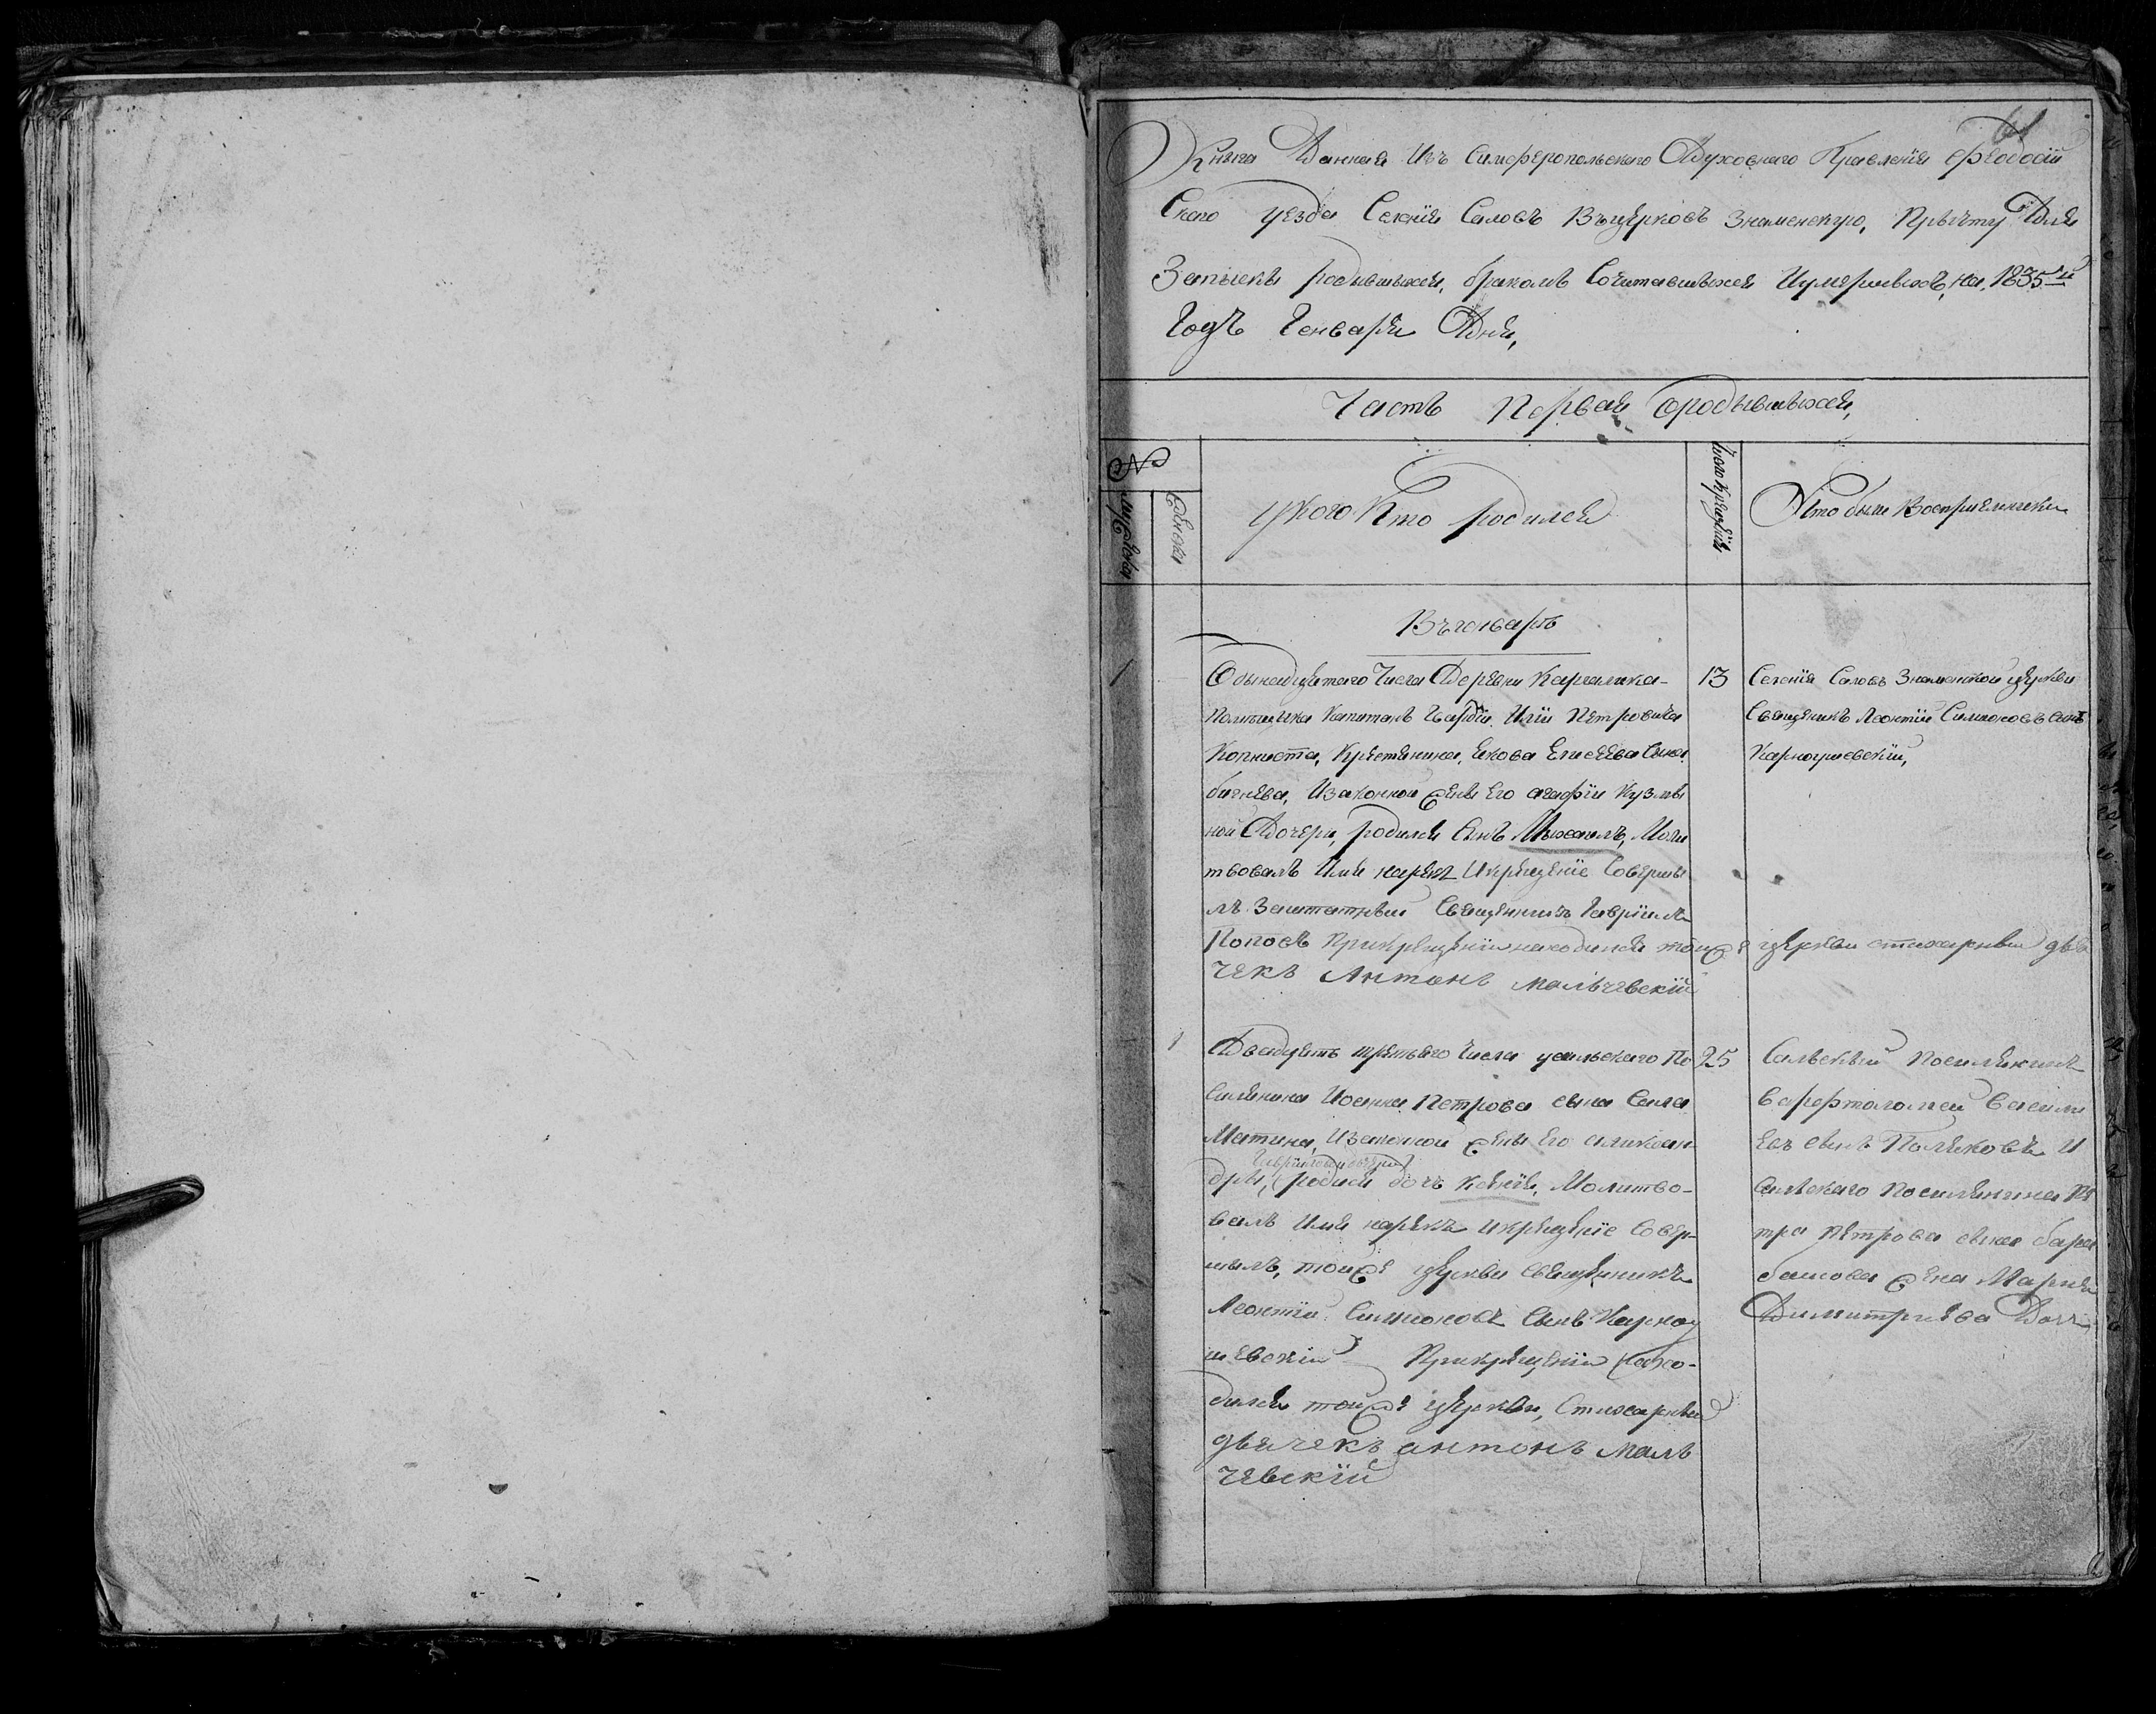 61
Книга Данная Изъ Симферопольского Духовнаго Правленія Феодосій
Скаго уезда Селенія Саловъ Въ церковъ Знаменскую, Прычту Для
Запыски родывшыхся, бракомъ Сочитавшыхся И умершыхъ, на 1835й
Годъ Генваря Дня,
Частъ Первая О родывшыхся,
№
мужска
женска
У кого Кто родился
Число крещенія
Кто были Восприемники
Въ генваръ
1
Одынадцятаго Числа Деревни Каргалика-
13
Помъщика Капитанъ Гвардіи Иліи Петровича
Капниста, Крестянина, Якова Елисеева Сына
Бигнева, И законной жены Его агафіи Кузмы
ной Дочери, родился Сынъ Мыхаилъ, Моли
твовалъ Имя нарекъ И крещеніе Совершы
лъ Заштатный Священникъ Гавріилъ
Поповъ При крещеніи находился тойже церкви стихарный дья
чекъ Антонъ Мальчевскій
Селенія Саловъ Знаменской церкви
Священникъ Леонтій Симоновъ Сынъ
Карноушевскій,
1
Двадцять третьего Числа усальского По
25
силянина Иоанна Петрова сына Сала
Матина, И законной жены Его алихсан-
Гавриловой дочери
дры, родися дочъ Ксенія, Молитво-
валъ Имя нарекъ и крещеніе Совер-
шылъ, тойже церкви священникъ
Леонтій Симоновъ Сынъ Карноу
шевскій При крещеніи нахо-
дился тойже церкви, Стихарный
дьячекъ антонъ Маль
чевскій
Сальскый Посилянинъ
варфталомей Васили
евъ сынъ Поляковъ И
Сальскаго Посилянина Пе
тра Петрова сына бара
башова жена Мария
Димитриева Дочъ